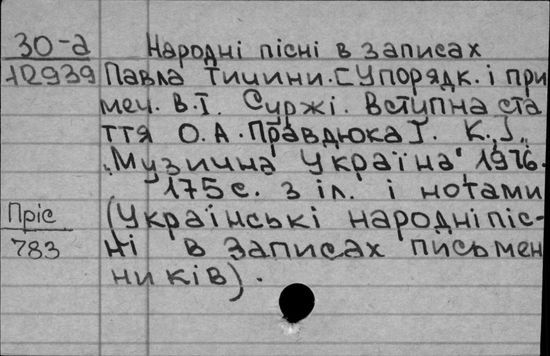 30-а
12939
Народні пісні в записах
Павла Тичини. [Упорядк. і при
меч. В.І. Суржі. Вступна ста
ття О.А. Правдюка]. К.,
"Музична Україна" 1976.
175 с. з іл. і нотами
Пріс
783
(Українські народні піс-
ні в записах письмен
ників).